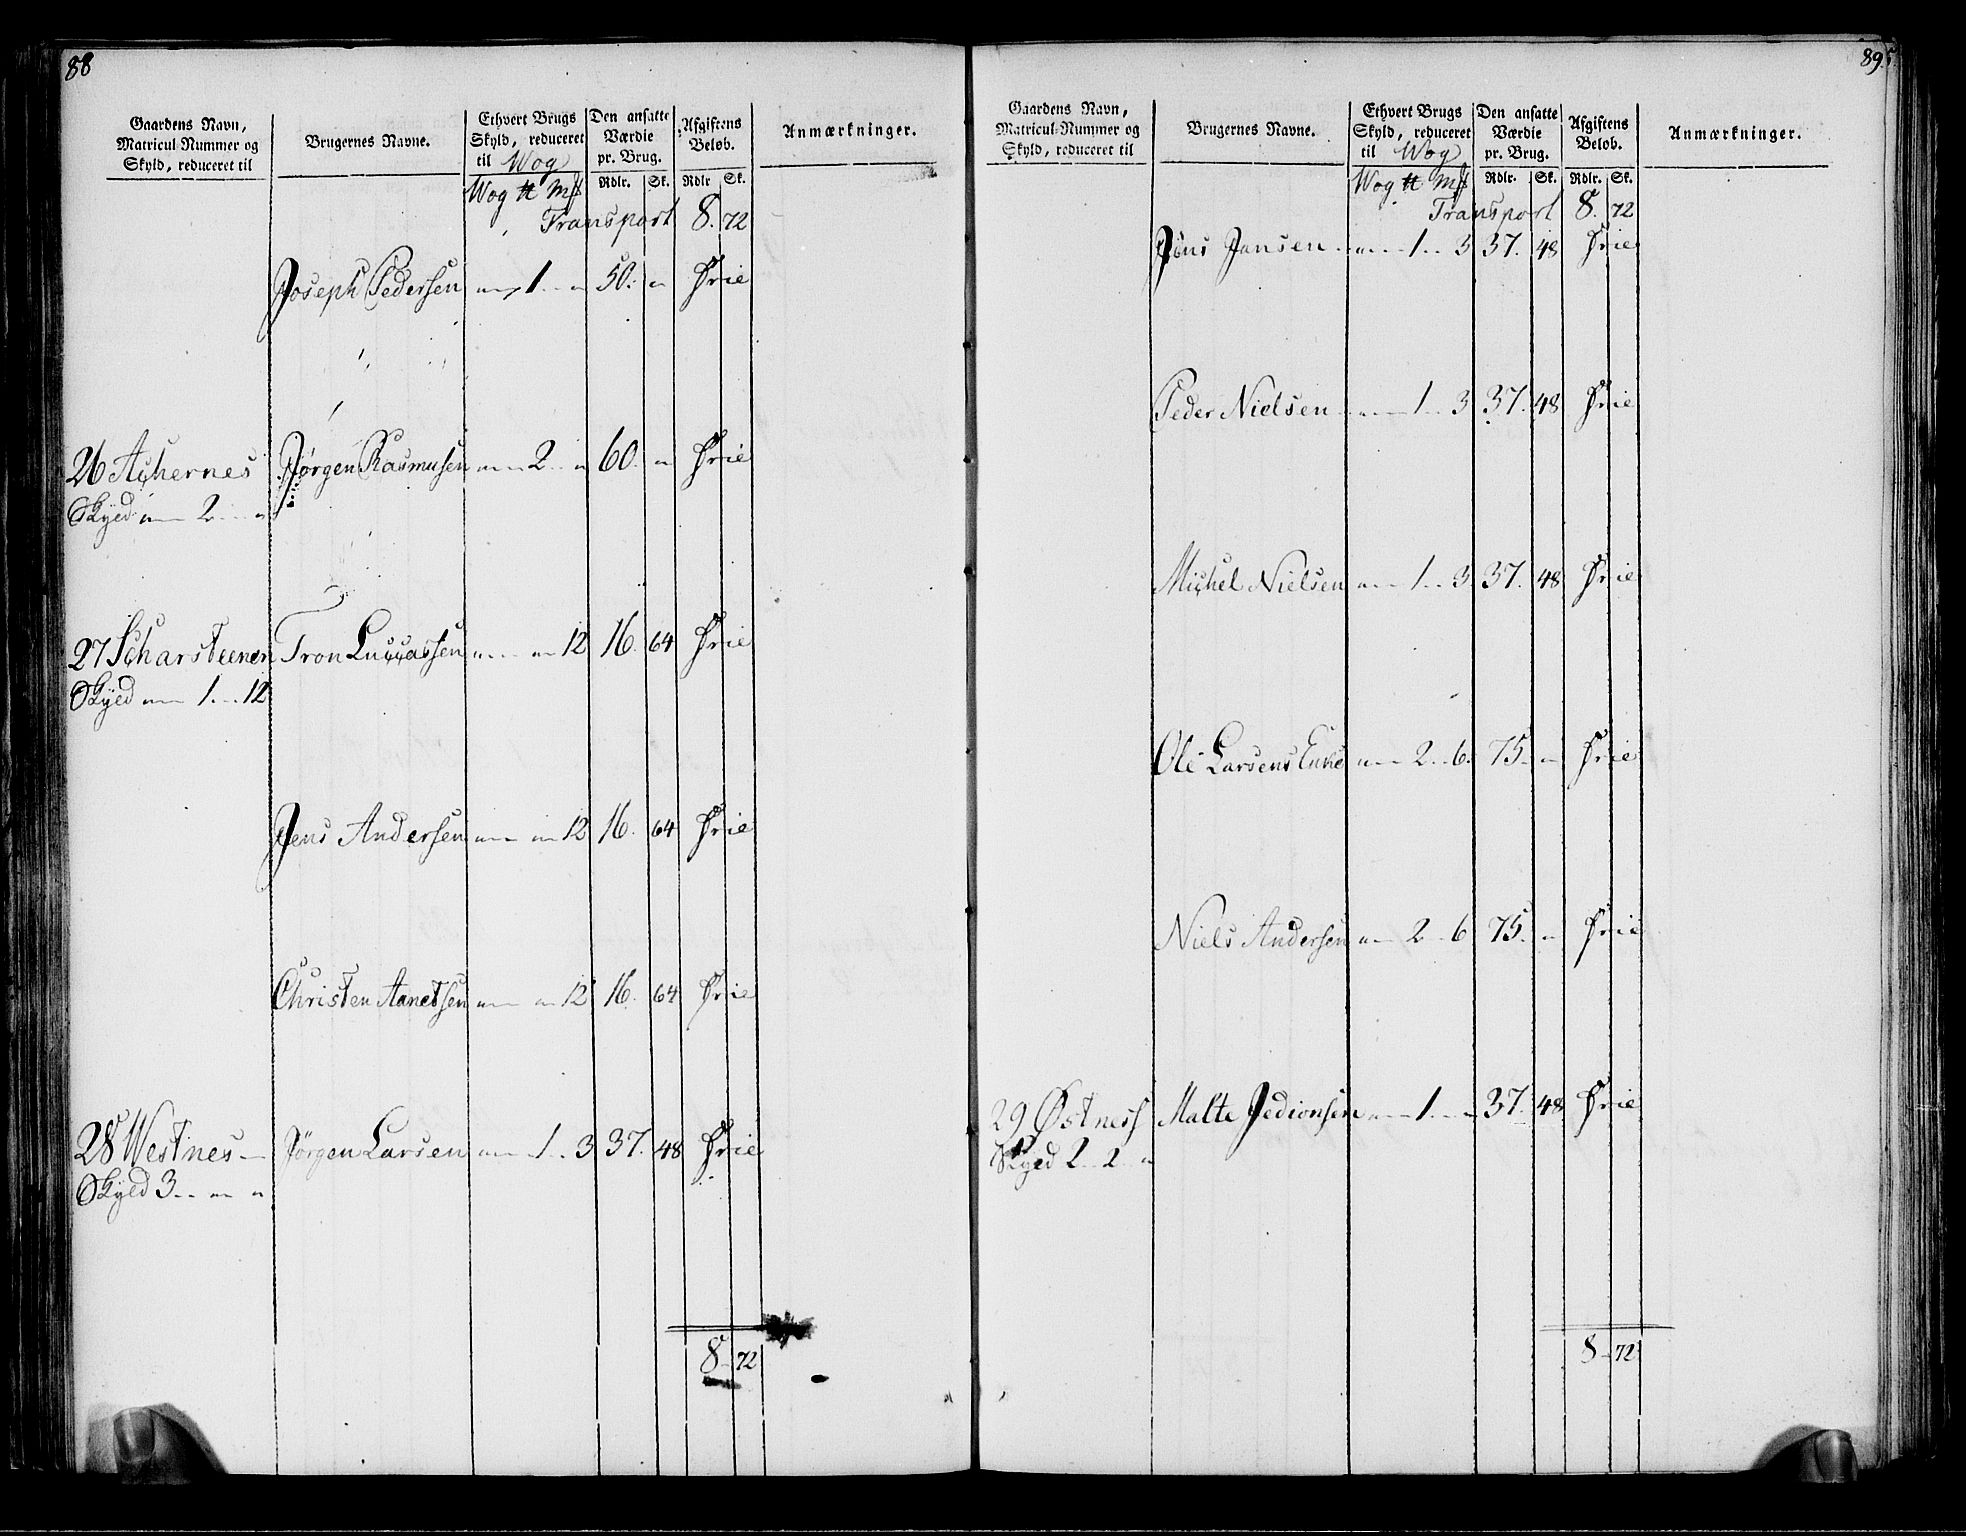 88
Gaardens Navn,
Matricul Nummer og
Skyld, reduceret til
Brugernes Navne.
Ethvert Brugs
Skyld, reduceret
til Wog
Den ansatte
Værdie
pr. Brug.
Afgiftens
Beløb.
Anmærkninger.
Wog ℔ Mk
Rdlr. Sk. Rdlr Sk.
Transport 8. 72
Joseph Pedersen „ 1 „ 50. „ Frie
26 Achernes Jørgen Rasmusen „ 2 „ 60. „ Frie
Skyld „ 2 „
27 Scharsteenen Tron Luccassen „ „ 12 16. 64 Frie
Skyld „ 1 12
Jens Andersen „ „ 12 16. 64 Frie
Christen Aanetsen „ „ 12 16. 64 Frie
28 Westnes Jørgen Larsen „ 1 3 37. 48 Frie
Skyld 3 „ „
8 72
89
Gaardens Navn,
Matricul-Nummer og
Skyld, reduceret til
Brugernes Navne.
Ethvert Brugs
Skyld, reduceret
til Wog
Den ansatte
Værdie
pr. Brug.
Afgiftens
Beløb.
Anmærkninger.
Wog ℔ Mk
Rdlr. Sk. Rdlr. Sk.
Transport 8. 72
Jens Jansen „ 1 3 37. 48 Frie
Peder Nielsen „ 1 3 37. 48 Frie
Michel Nielsen „ 1 3 37. 48 Frie
Ole Larsens Enke „ 2 6. 75 „ Frie
Niels Andersen „ 2 6 75. „ Frie
29 Østness Malte Jedionsen „ 1 „ 37. 48 Frie
Skyld 2 2 „
8 72